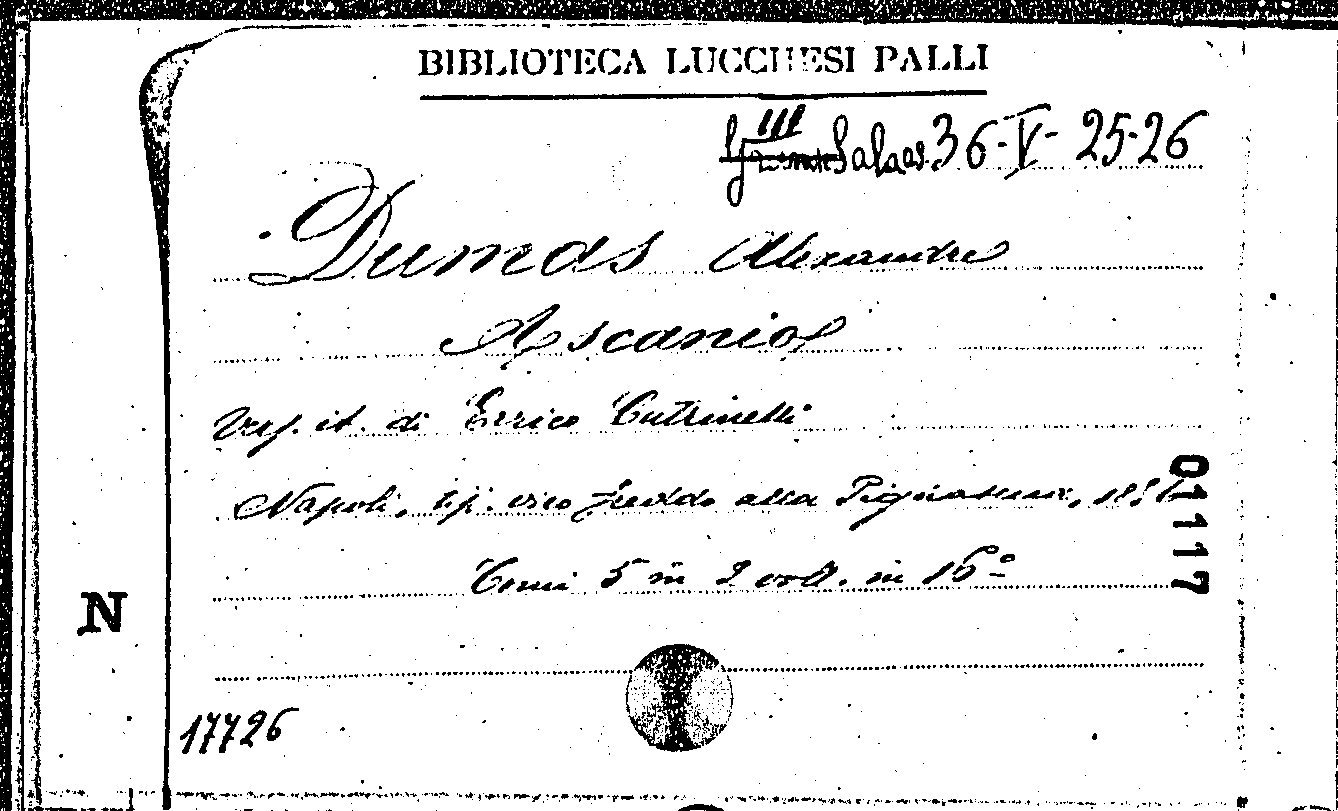 BIBLIOTECA LUCCHESI PALLI
III Sala 36-V-25-26
Dumas Alexandre
Ascanio
Vers. it. di Errico Cutrinelli
Napoli, tip. vico freddo alla Pignasecca,
01117
Tomi 5 in 2 voll. in 16°
N
17726